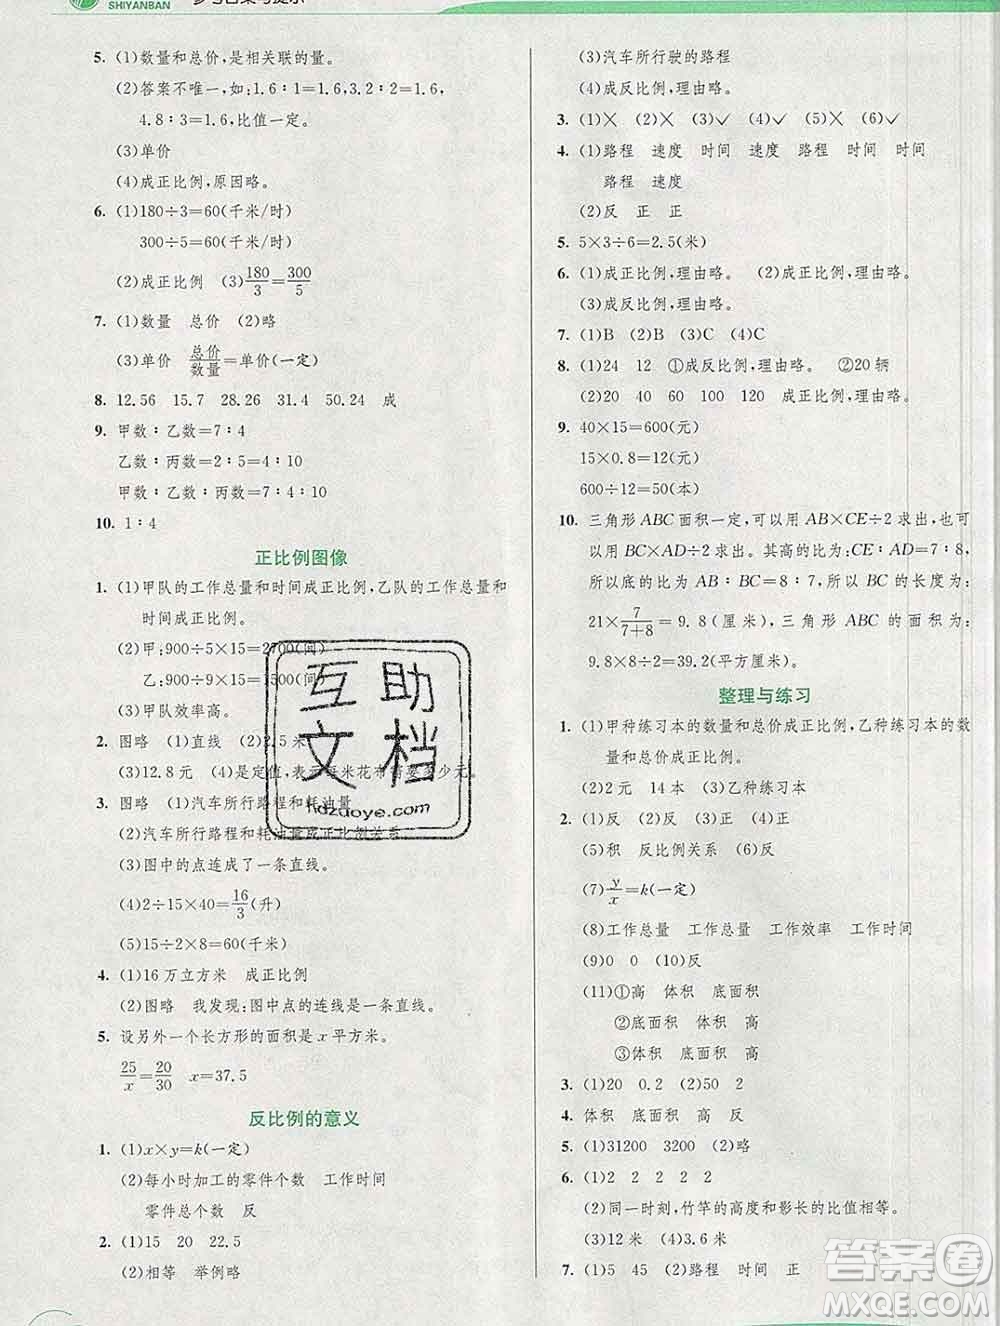 SHIYANBAN
参考答案与提示
5. (1)数量和总价,是相关联的量。
(2)答案不唯一,如:1.6∶1=1.6,3.2∶2=1.6,
4.8∶3=1.6,比值一定。
(3)单价
(4)成正比例,原因略。
6. (1)180÷3=60(千米/时)
300÷5=60(千米/时)
(2)成正比例 (3)180/3=300/5
7. (1)数量 总价 (2)略
(3)单价 总价/数量=单价(一定)
8. 12.56 15.7 28.26 31.4 50.24 成
9. 甲数∶乙数=7∶4
乙数∶丙数=2∶5=4∶10
甲数∶乙数∶丙数=7∶4∶10
10. 1∶4
正比例图像
1. (1)甲队的工作总量和时间成正比例,乙队的工作总量和
时间成正比例。
(2)甲:900÷5×15=2700(间)
乙:900÷9×15=1500(间)
(3)甲队效率高。
2. 图略 (1)直线 (2)2.5 米
(3)12.8 元 (4)是定值,表示每米花布需要多少元。
3. 图略 (1)汽车所行路程和耗油量
(2)汽车所行路程和耗油量成正比例关系。
(3)图中的点连成了一条直线。
(4)2÷15×40=16/3(升)
(5)15÷2×8=60(千米)
4. (1)16 万立方米 成正比例
(2)图略 我发现:图中点的连线是一条直线。
5. 设另外一个长方形的面积是 x 平方米。
25/x=20/30 x=37.5
反比例的意义
1. (1)x×y=k(一定)
(2)每小时加工的零件个数 工作时间
零件总个数 反
2. (1)15 20 22.5
(2)相等 举例略
(3)汽车所行驶的路程
(4)成反比例,理由略。
3. (1)✕ (2)✕ (3)✓ (4)✓ (5)✕ (6)✓
4. (1)路程 速度 时间 速度 路程 时间 时间
路程 速度
(2)反 正 正
5. 5×3÷6=2.5(米)
6. (1)成正比例,理由略。 (2)成正比例,理由略。
(3)成反比例,理由略。
7. (1)B (2)B (3)C (4)C
8. (1)24 12 ①成反比例,理由略。 ②20 辆
(2)20 40 60 100 120 成正比例,理由略。
9. 40×15=600(元)
15×0.8=12(元)
600÷12=50(本)
10. 三角形 ABC 面积一定,可以用 AB×CE÷2 求出,也可
以用 BC×AD÷2 求出。其高的比为:CE∶AD=7∶8,
所以底的比为 AB∶BC=8∶7,所以 BC 的长度为:
21×7/(7+8)=9.8(厘米),三角形 ABC 的面积为:
9.8×8÷2=39.2(平方厘米)。
整理与练习
1. (1)甲种练习本的数量和总价成正比例,乙种练习本的数
量和总价成正比例。
(2)2元 14本 (3)乙种练习本
2. (1)反 (2)反 (3)正 (4)正
(5)积 反比例关系 (6)反
(7)y/x=k(一定)
(8)工作总量 工作总量 工作效率 工作时间
(9)0 0 (10)反
(11)①高 体积 底面积
②底面积 体积 高
③体积 底面积 高
3. (1)20 0.2 (2)20
4. 体积 底面积 高 反
5. (1)31200 3200 (2)略
6. (1)2 2 2 2
(2)同一时刻,竹竿的高度和影长的比值相等。
(3)12米 (4)3.6米
7. (1)5 45 (2)路程 时间 正
互助
文档
hdzuoye.com
答案圈
MXQE.COM